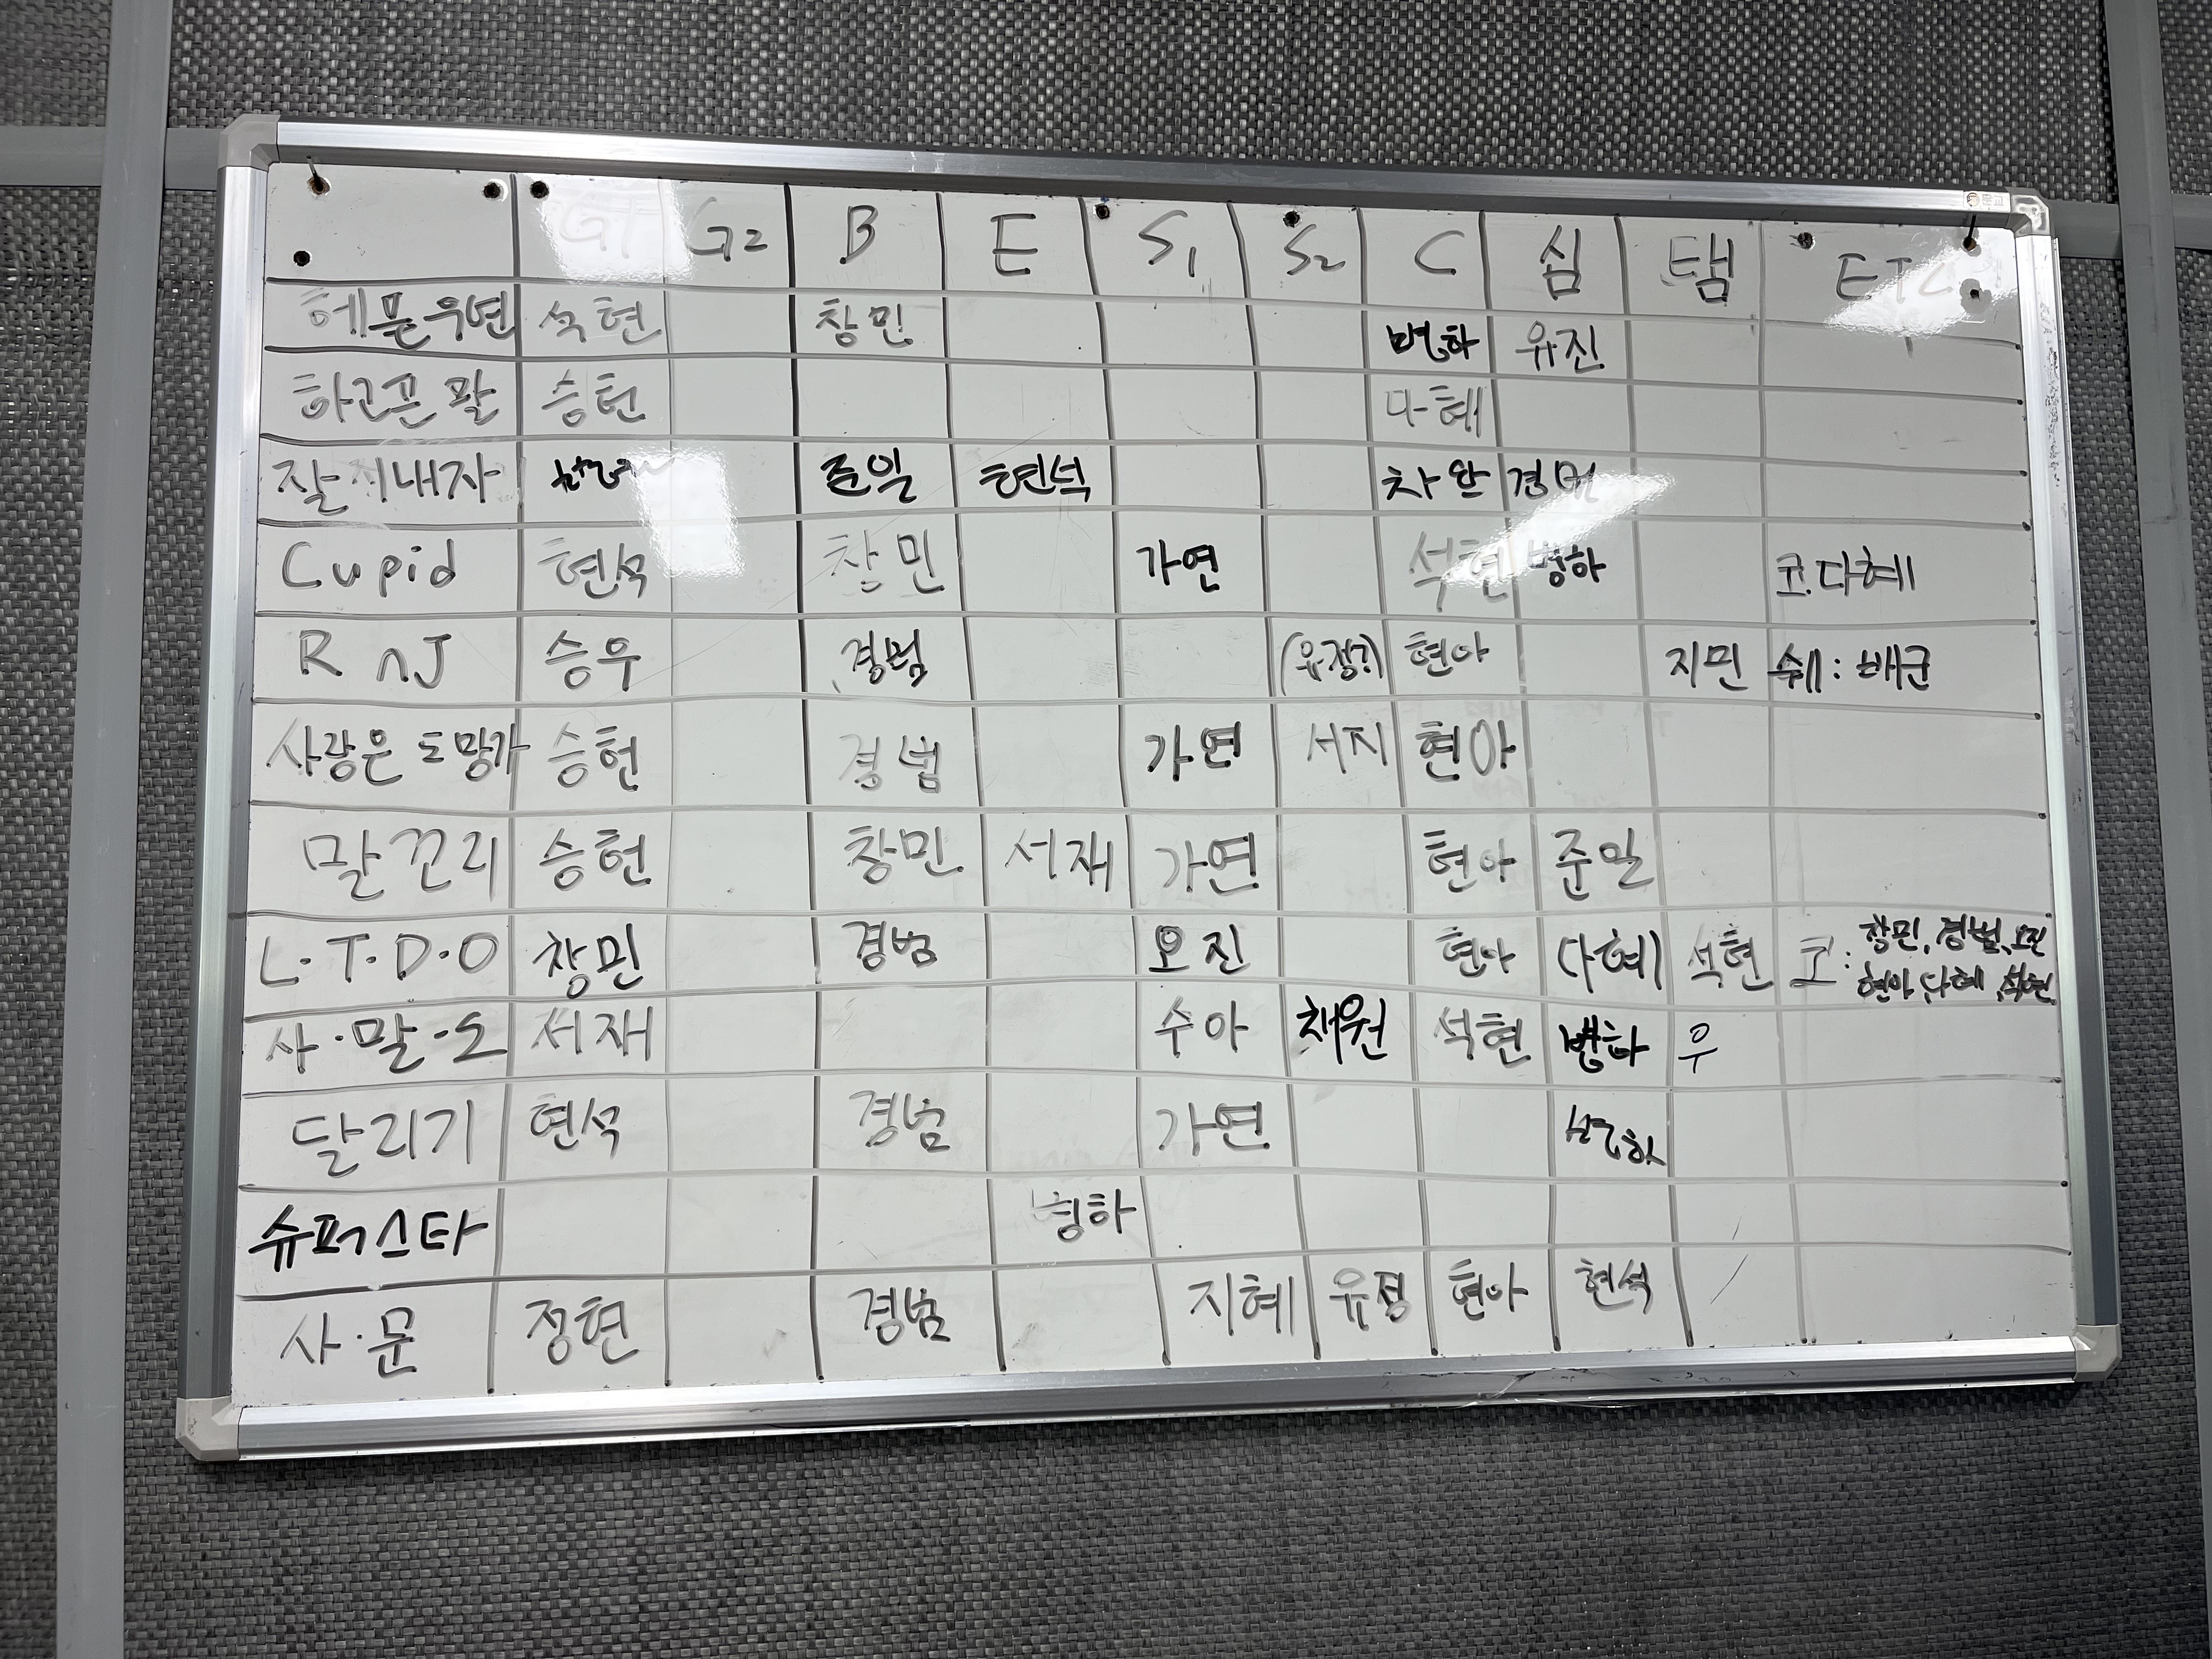 G1 G2 B E S1 S2 C 심 탬 ETC
헤픈우연 석현 창민 병하 유진
하고픈 말 승헌 다혜
잘 지내자 준일 현석 차완 경범
Cupid 현석 창민 가연 석현 병하 코.다혜
R nJ 승우 경범 (유정?) 현아 지민 쉐: 배균
사랑은 도망가 승헌 경범 가연 서지 현아
말꼬리 승헌 창민 서재 가연 현아 준일
L.T.D.O 창민 경범 오진 현아 (다혜) 석현 코: 창민, 경범, 오진
현아, 다혜, 석현
사·말·도 서재 수아 채원 석현 병하 우
달리기 현석 경범 가연
슈퍼스타 병하
사·문 정현 경범 지혜 유정 현아 현석